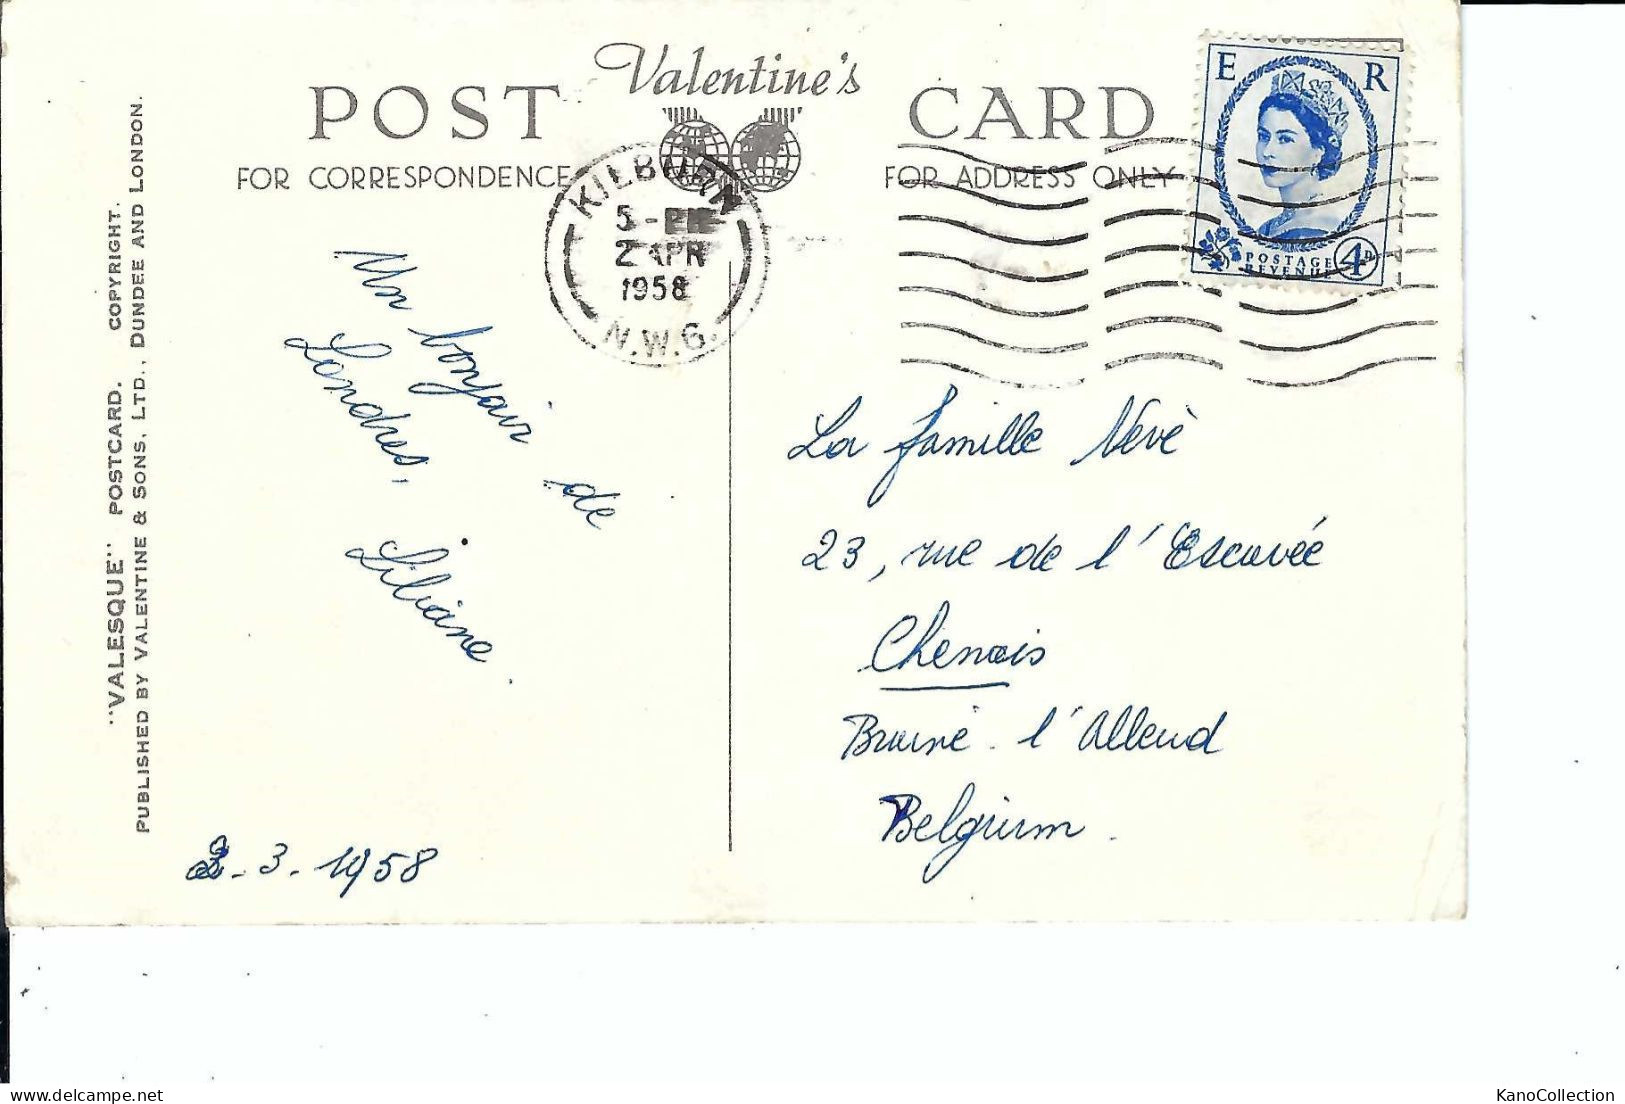 POST Valentine's CARD
FOR CORRESPONDENCE
FOR ADDRESS ONLY
E R
POSTAGE
REVENUE
4D
KILBURN
5-
2 APR
1958
N.W.6.
"VALESQUE" POSTCARD. COPYRIGHT.
PUBLISHED BY VALENTINE & SONS, LTD., DUNDEE AND LONDON.
Un bonjour de
Londres.
Liliane.
2.3.1958
La famille Nève
23, rue de l'Escavée
Chenois
Braine-l'Alleud
Belgium.
KanoCollection